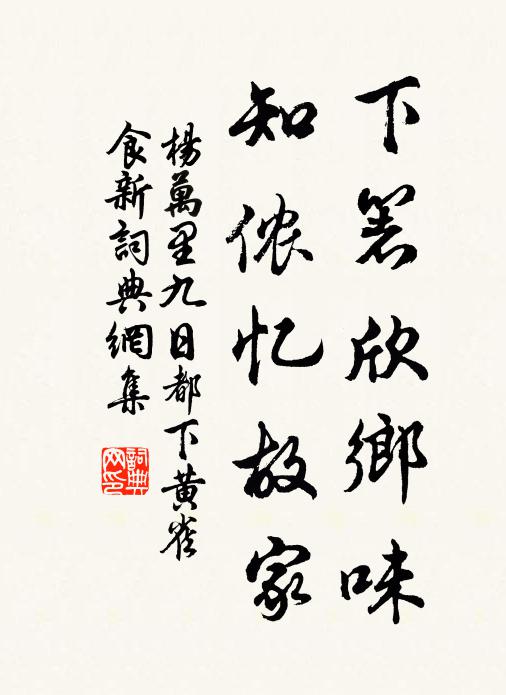 下箸欣鄉味
知侬忆故家
楊萬里九日都下黄雀
食新詞典網集
詞典網印